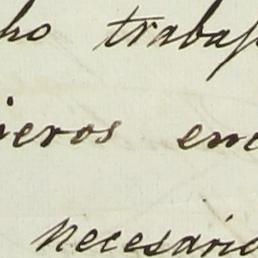 ho trabaj
ieros en
necesario